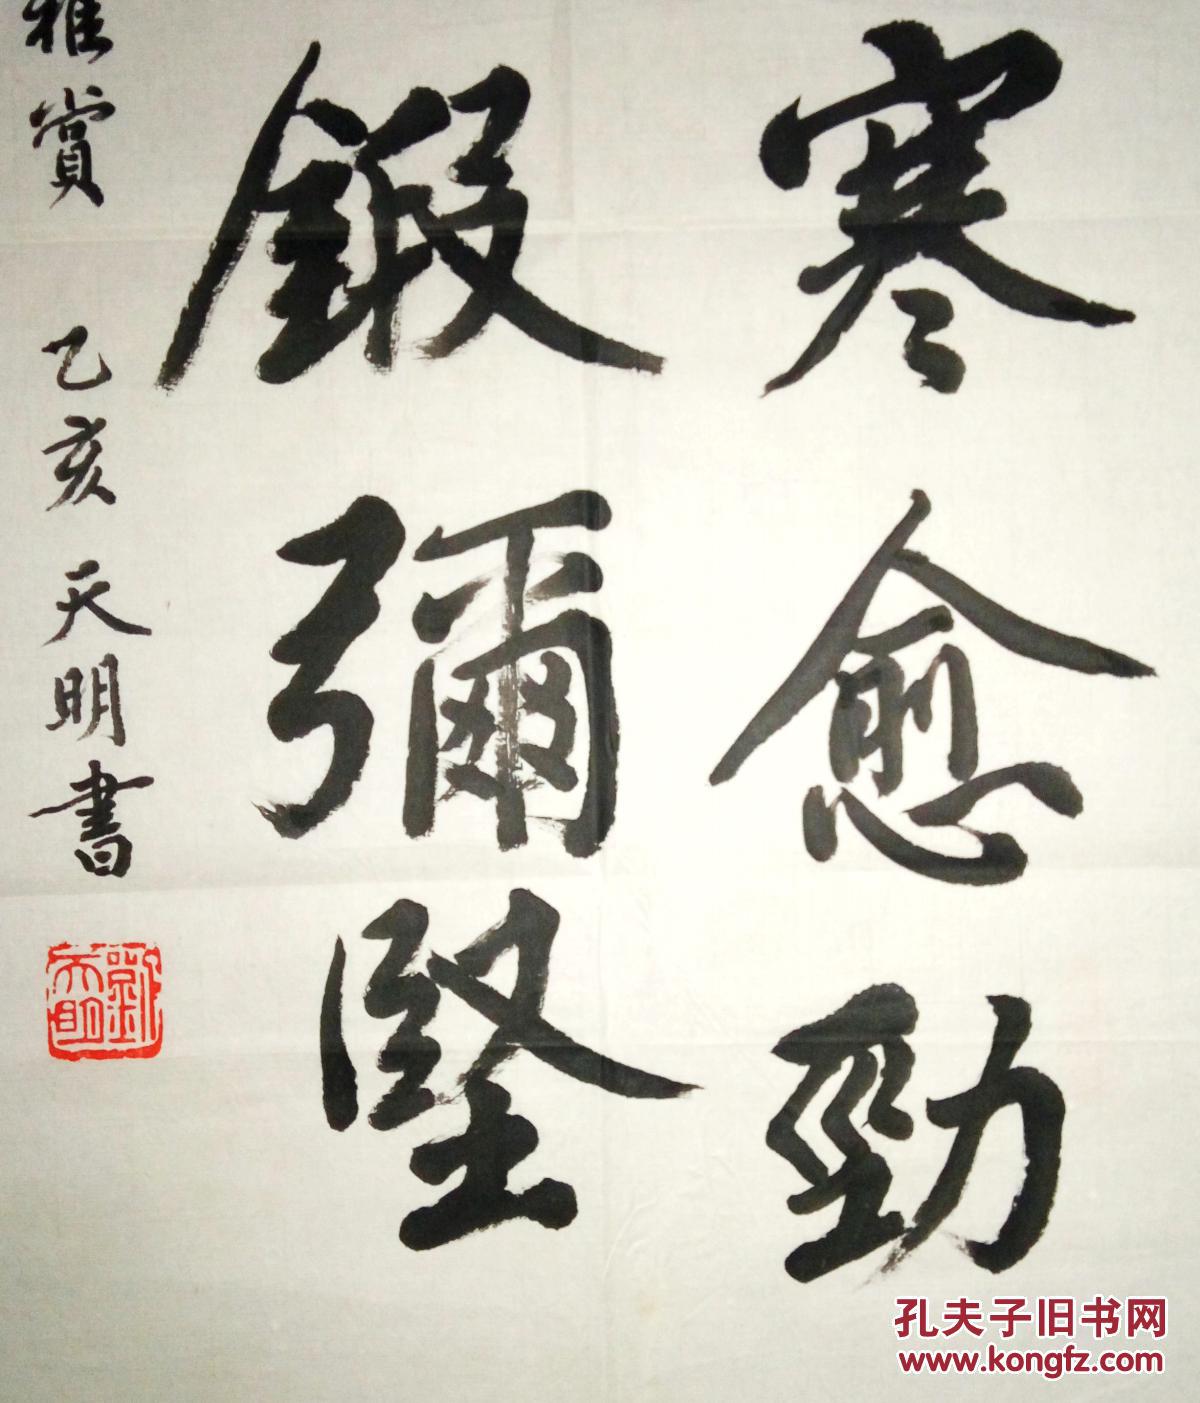 寒愈勁
鍛彌堅
雅賞 乙亥天明書
劉天明
孔夫子旧书网
www.kongfz.com